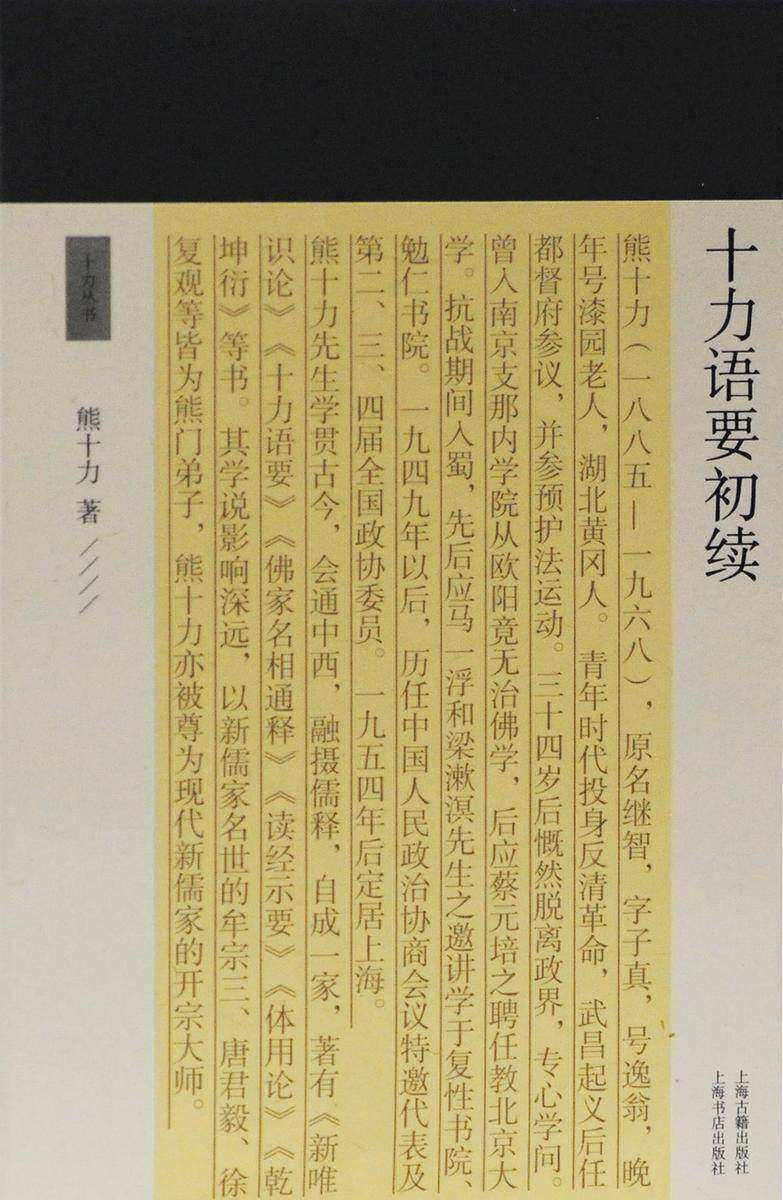 十力语要初续
上海古籍出版社
上海书店出版社
熊十力（一八八五—一九六八），原名继智，字子真，号逸翁，晚
年号漆园老人，湖北黄冈人。青年时代投身反清革命，武昌起义后任
都督府参议，并参预护法运动。三十四岁后慨然脱离政界，专心学问。
曾入南京支那内学院从欧阳竟无治佛学，后应蔡元培之聘任教北京大
学。抗战期间入蜀，先后应马一浮和梁漱溟先生之邀讲学于复性书院、
勉仁书院。一九四九年以后，历任中国人民政治协商会议特邀代表及
第二、三、四届全国政协委员。一九五四年后定居上海。
熊十力先生学贯古今，会通中西，融摄儒释，自成一家，著有《新唯
识论》《十力语要》《佛家名相通释》《读经示要》《体用论》《乾
坤衍》等书。其学说影响深远，以新儒家名世的牟宗三、唐君毅、徐
复观等皆为熊门弟子，熊十力亦被尊为现代新儒家的开宗大师。
十力丛书
熊十力 著